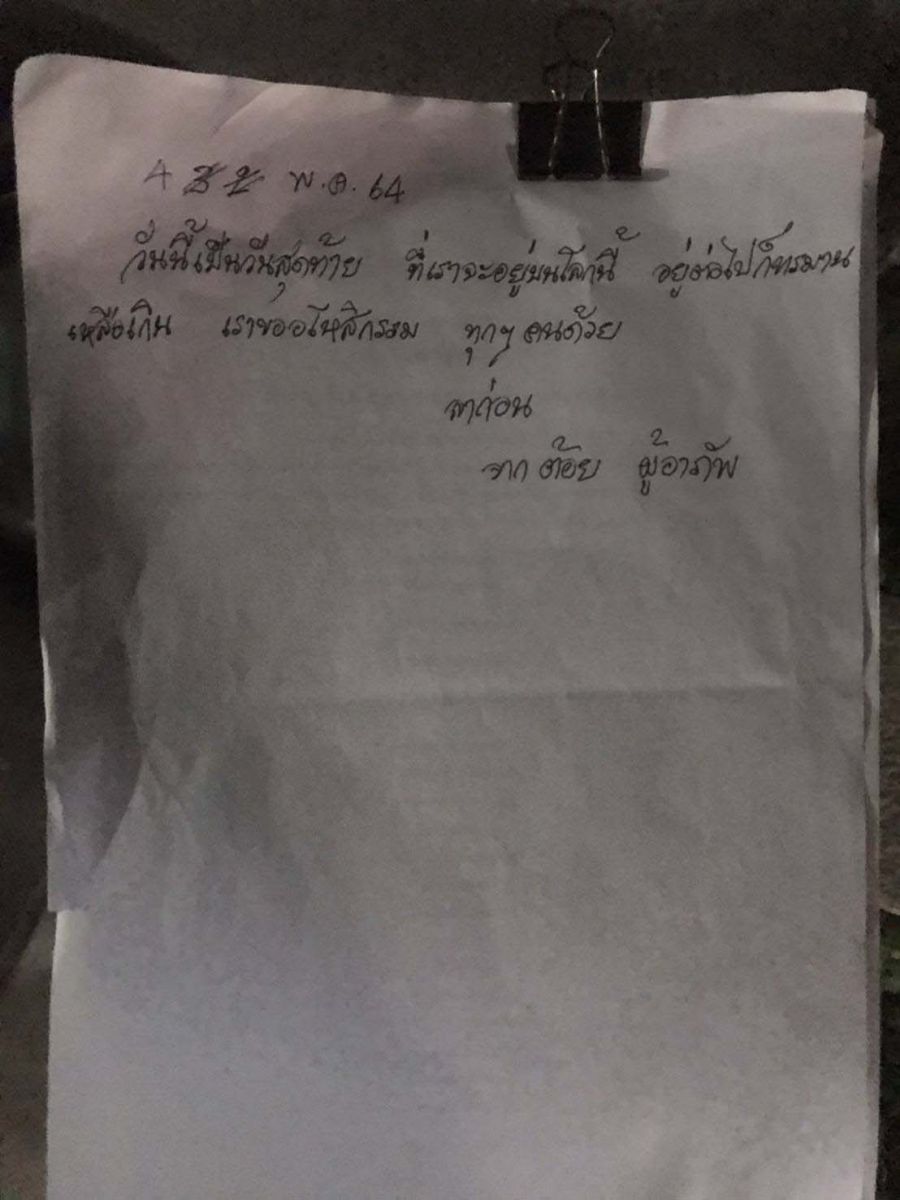 4 พ.ค. 64
วันนี้เป็นวันสุดท้าย ที่เราจะอยู่บนโลกนี้ อยู่ต่อไปก็ทรมาน
เหลือเกิน เราขออโหสิกรรม ทุกๆ คนด้วย
ลาก่อน
จาก ต้อย ผู้อาภัพ